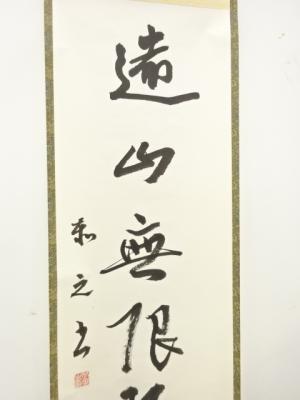 遠山無限
之書